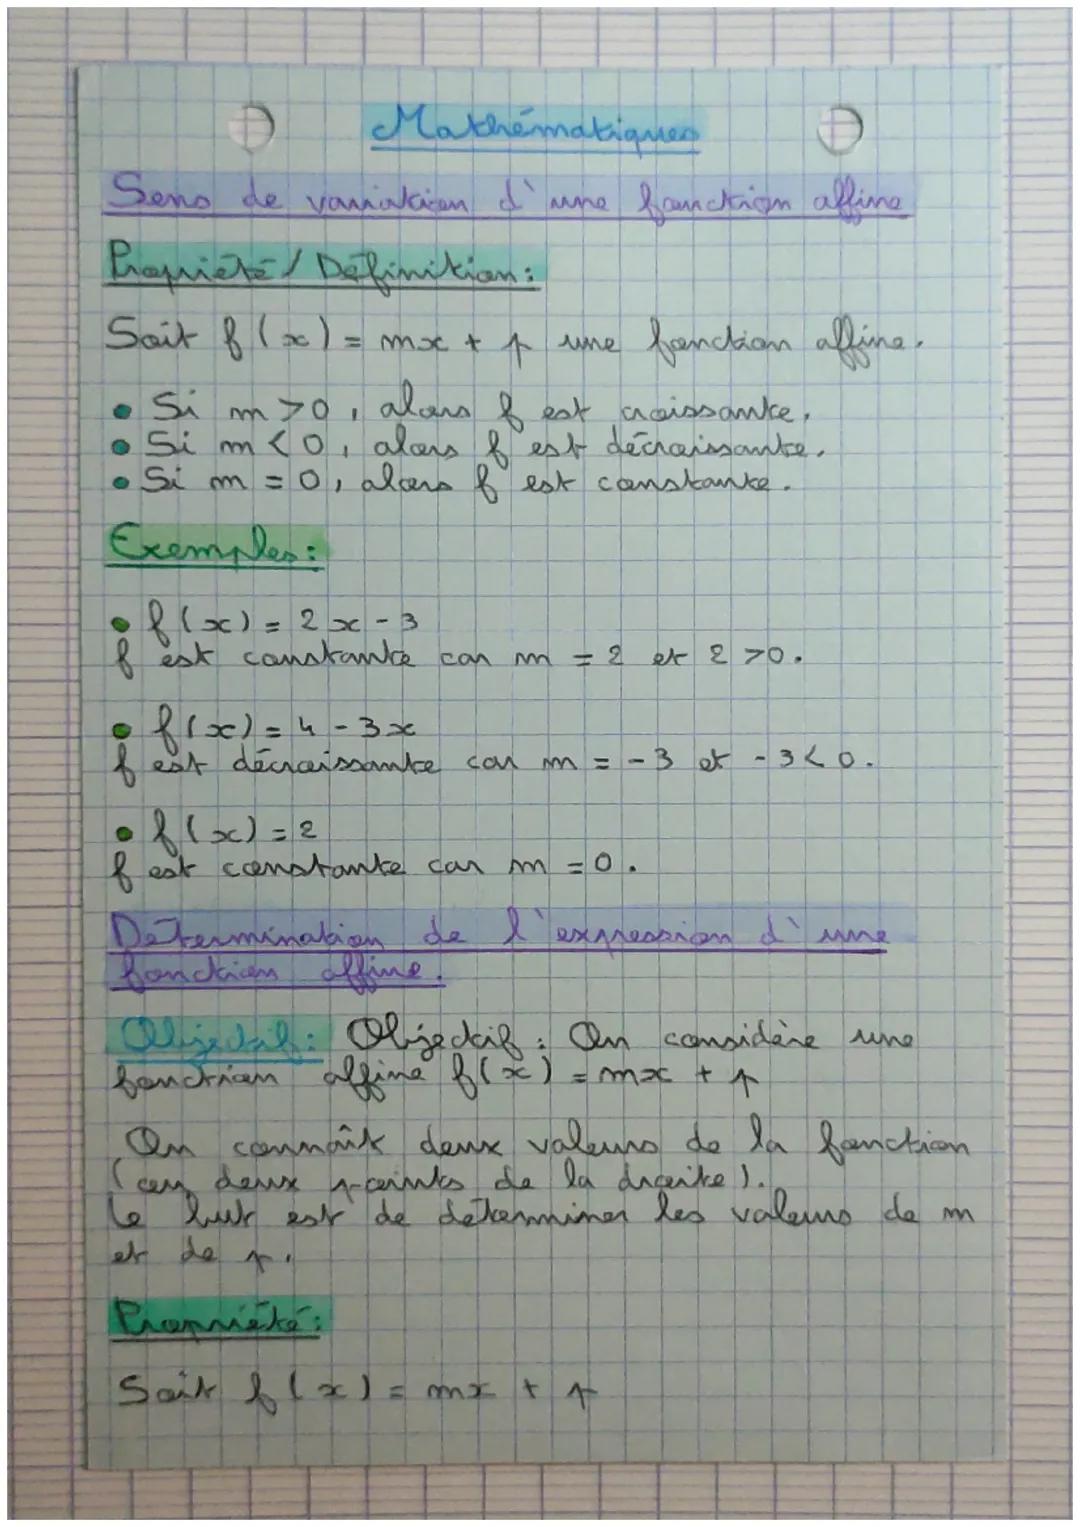 Mathématiques
Sens de variation d'une fonction affine
Propriété / Définition :
Soit f(x) = mx + p une fonction affine.
• Si m > 0, alors f est croissante.
• Si m < 0, alors f est décroissante.
• Si m = 0, alors f est constante.
Exemples :
• f(x) = 2x - 3
f est constante car m = 2 et 2 > 0.
• f(x) = 4 - 3x
f est décroissante car m = -3 et -3 < 0.
• f(x) = 2
f est constante car m = 0.
Détermination de l'expression d'une
fonction affine.
Objectif : Objectif : On considère une
fonction affine f(x) = mx + p
On connaît deux valeurs de la fonction
(ou deux points de la droite).
Le but est de déterminer les valeurs de m
et de p.
Propriété :
Soit f(x) = mx + p